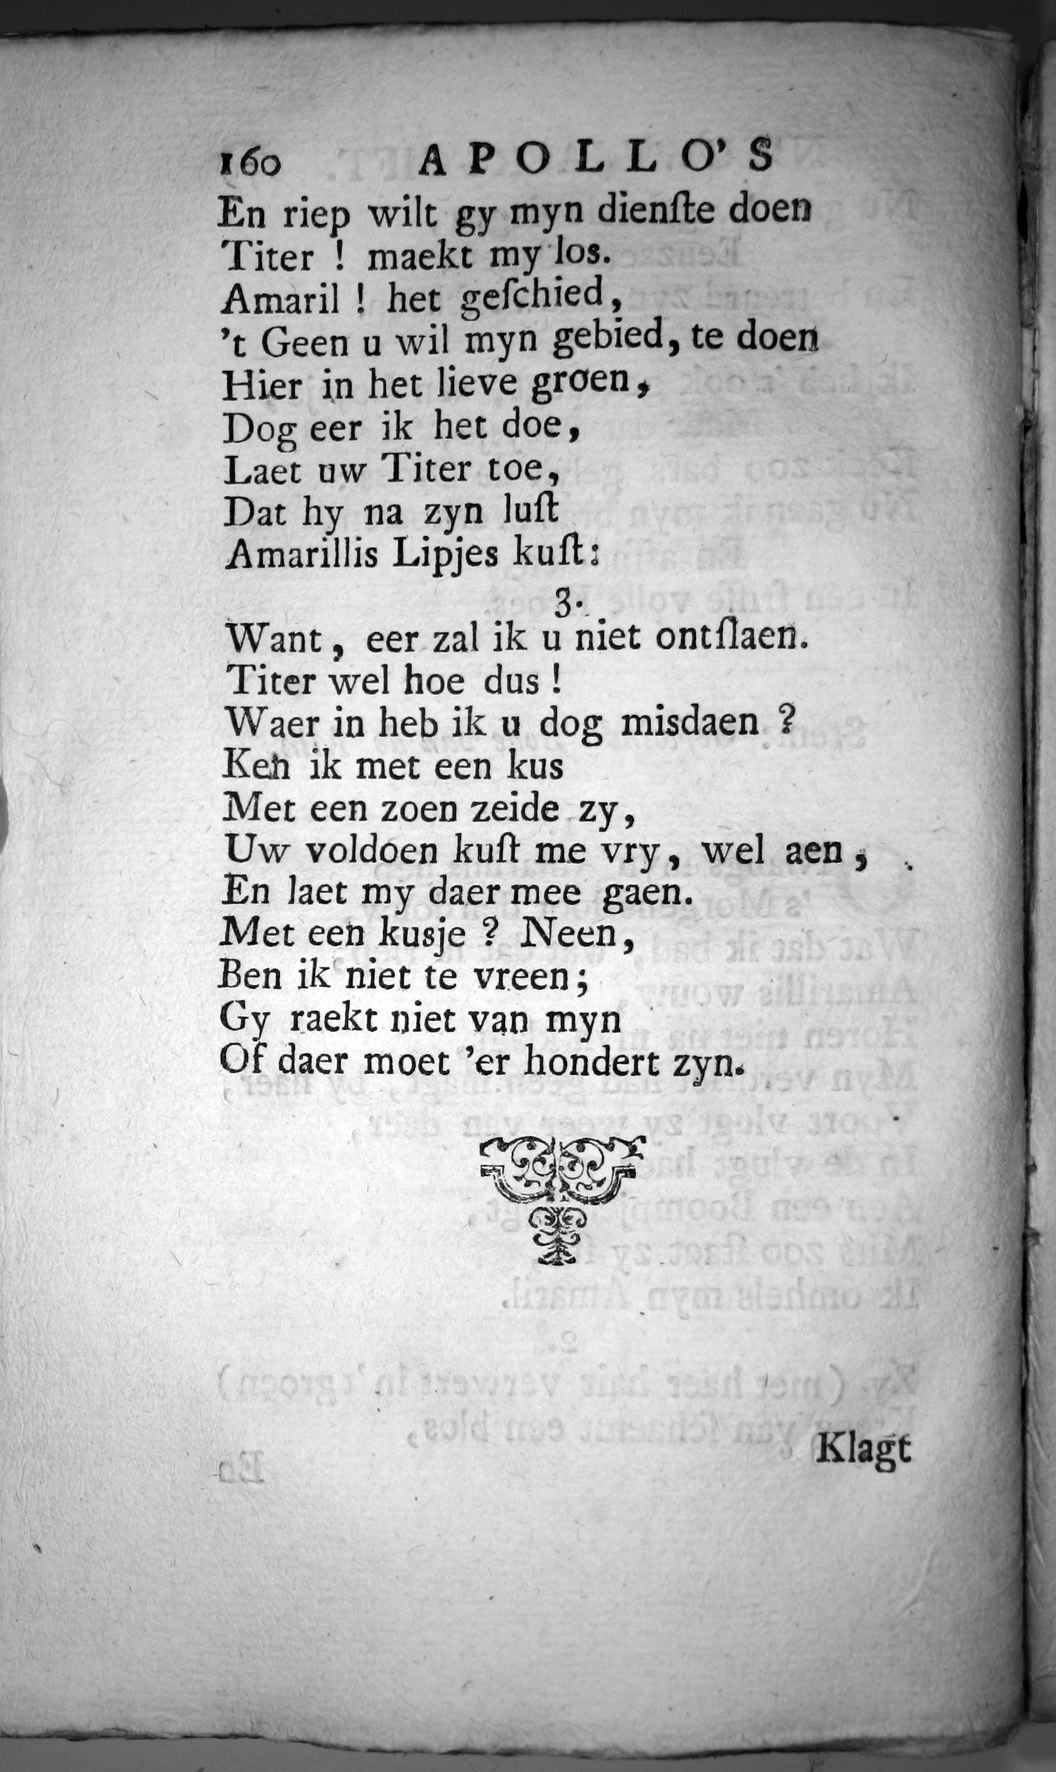 160 APOLLO'S
En riep wilt gy myn dienſte doen
Titer ! maekt my los.
Amaril ! het geſchied,
't Geen u wil myn gebied, te doen
Hier in het lieve groen,
Dog eer ik het doe,
Laet uw Titer toe,
Dat hy na zyn luſt
Amarillis Lipjes kuſt:
3.
Want, eer zal ik u niet ontſlaen.
Titer wel hoe dus !
Waer in heb ik u dog misdaen ?
Ken ik met een kus
Met een zoen zeide zy,
Uw voldoen kuſt me vry, wel aen,
En laet my daer mee gaen.
Met een kusje ? Neen,
Ben ik niet te vreen;
Gy raekt niet van myn
Of daer moet 'er hondert zyn.
Klagt